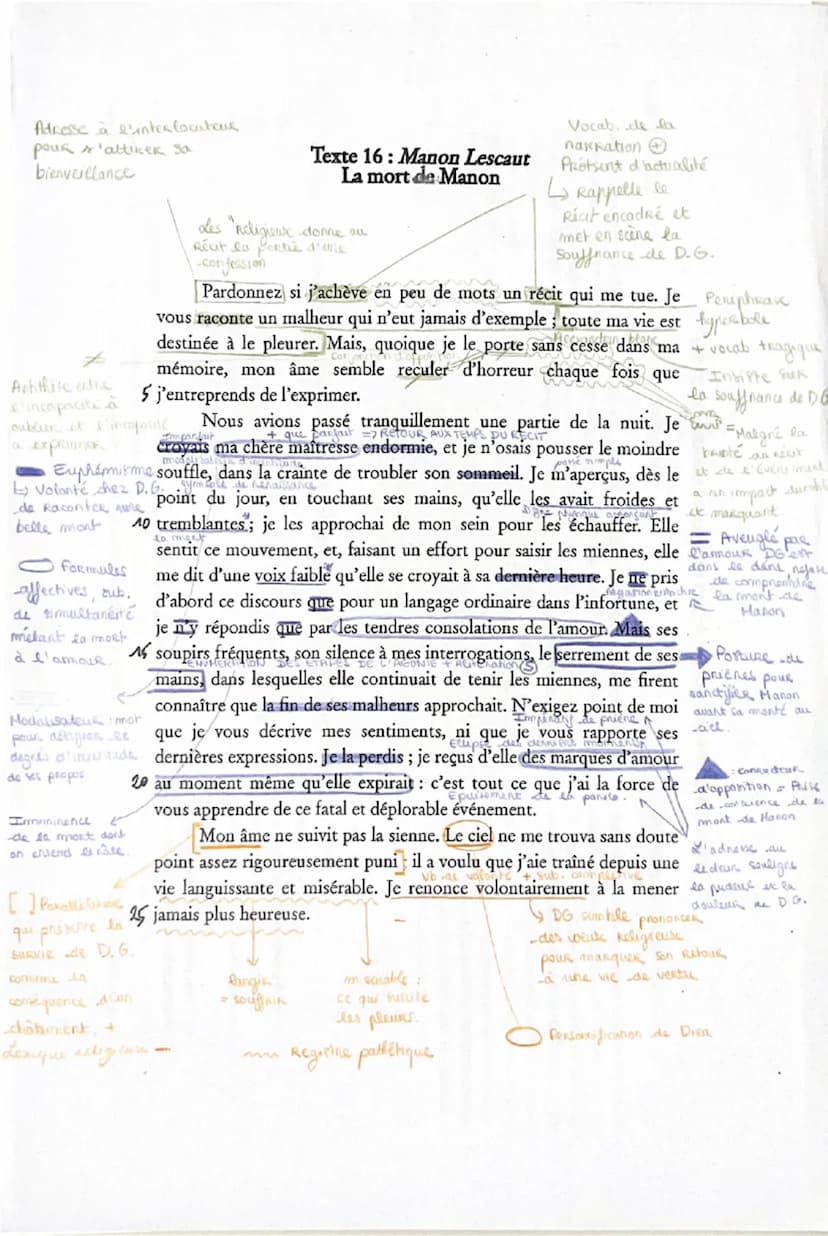 Adresse à l'interlocuteur
pour s'attirer sa
bienveillance
Vocab. de la
narration +
Présent d'actualité
↳ Rappelle le
Récit encadré et
met en scène la
souffrance de D.G.
Texte 16 : Manon Lescaut
La mort de Manon
Les "religieux donne au
Récit la portée d'une
confession
Pardonnez si j'achève en peu de mots un récit qui me tue. Je
vous raconte un malheur qui n'eut jamais d'exemple ; toute ma vie est
destinée à le pleurer. Mais, quoique je le porte sans cesse dans ma
mémoire, mon âme semble reculer d'horreur chaque fois que
5 j'entreprends de l'exprimer.
Périphrase
hyperbole
+ vocab tragique
Insiste sur
la souffrance de D.G
= Malgré la
a un impact durable
et marquant.
≠
Antithèse entre
l'incapacité à
oublier et l'incapacité
à exprimer
Nous avions passé tranquillement une partie de la nuit. Je
imparfait + que parfait => RETOUR AUX TEMPS DU RÉCIT
croyais ma chère maîtresse endormie, et je n'osais pousser le moindre
passé simple
souffle, dans la crainte de troubler son sommeil. Je m'aperçus, dès le
symbole de Renaissance
point du jour, en touchant ses mains, qu'elle les avait froides et
10 tremblantes ; je les approchai de mon sein pour les échauffer. Elle
la mort
sentit ce mouvement, et, faisant un effort pour saisir les miennes, elle
me dit d'une voix faible qu'elle se croyait à sa dernière heure. Je ne pris
d'abord ce discours que pour un langage ordinaire dans l'infortune, et
je n'y répondis que par les tendres consolations de l'amour. Mais ses
15 soupirs fréquents, son silence à mes interrogations, le serrement de ses
ENUMERATION DES ETAPES DE L'AGONIE + Allitération (S)
mains, dans lesquelles elle continuait de tenir les miennes, me firent
connaître que la fin de ses malheurs approchait. N'exigez point de moi
Impératif de prière
que je vous décrive mes sentiments, ni que je vous rapporte ses
Ellipse des derniers moments
dernières expressions. Je la perdis ; je reçus d'elle des marques d'amour
20 au moment même qu'elle expirait : c'est tout ce que j'ai la force de
Epuisement de la parole.
vous apprendre de ce fatal et déplorable événement.
Euphémisme
↳ Volonté chez D.G.
de Raconter une
belle mort
Formules
affectives, sub.
de simultanéité
mêlant la mort
à l'amour.
Modalisateur : mot
pour désigner le
degrés d'incertitude
de ses propos
Imminence
de la mort dont
on entend le râle.
Aveuglé par
l'amour DG est
dans le déni, refuse
de comprendre
la mort de
Manon
Posture de
prières pour
sanctifier Manon
avant sa monté au
ciel.
: connecteur
d'opposition = Prise
de conscience de la
mort de Manon
L'adresse au
lecteur souligne
la pudeur et la
douleur de D.G.
Mon âme ne suivit pas la sienne. Le ciel ne me trouva sans doute
point assez rigoureusement puni ; il a voulu que j'aie traîné depuis une
Vb de volonté + sub. complétive
vie languissante et misérable. Je renonce volontairement à la mener
25 jamais plus heureuse.
[ ] Parallélisme
qui présente la
survie de D.G.
comme la
conséquence d'un
châtiment. +
Lexique religieux
langir
= souffrir
misérable :
ce qui suscite
les pleurs.
Registre pathétique
↳ DG semble prononcer
des vœux Religieuse
pour marquer son retour
à une vie de vertu
Personnification de Dieu